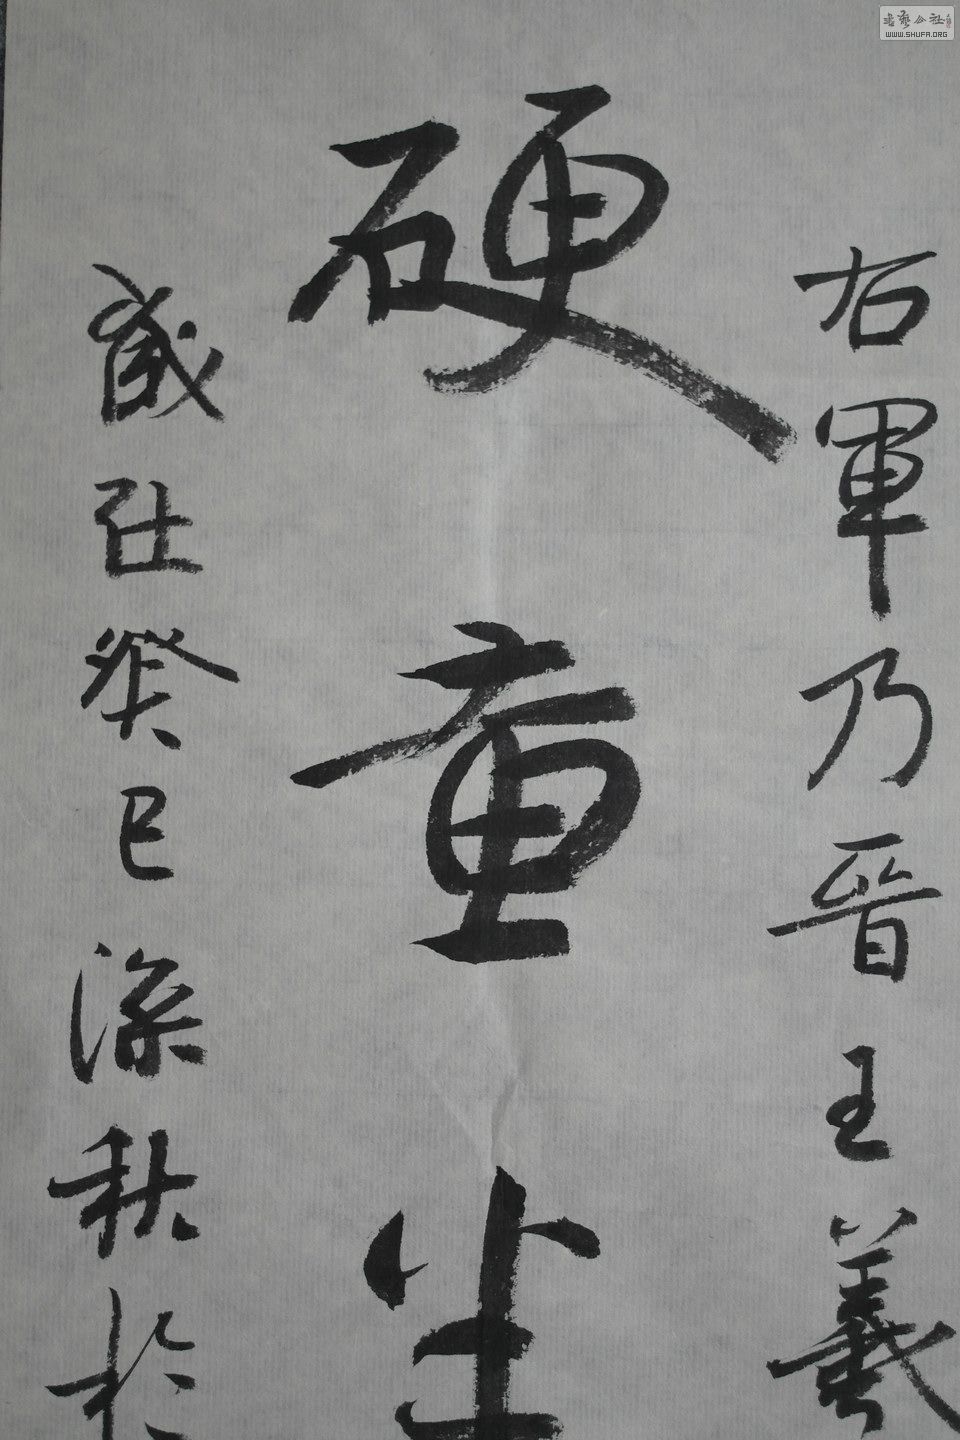 右軍乃晉王羲
硬黄
歲在癸巳深秋於
書藝公社
WWW.SHUFA.ORG